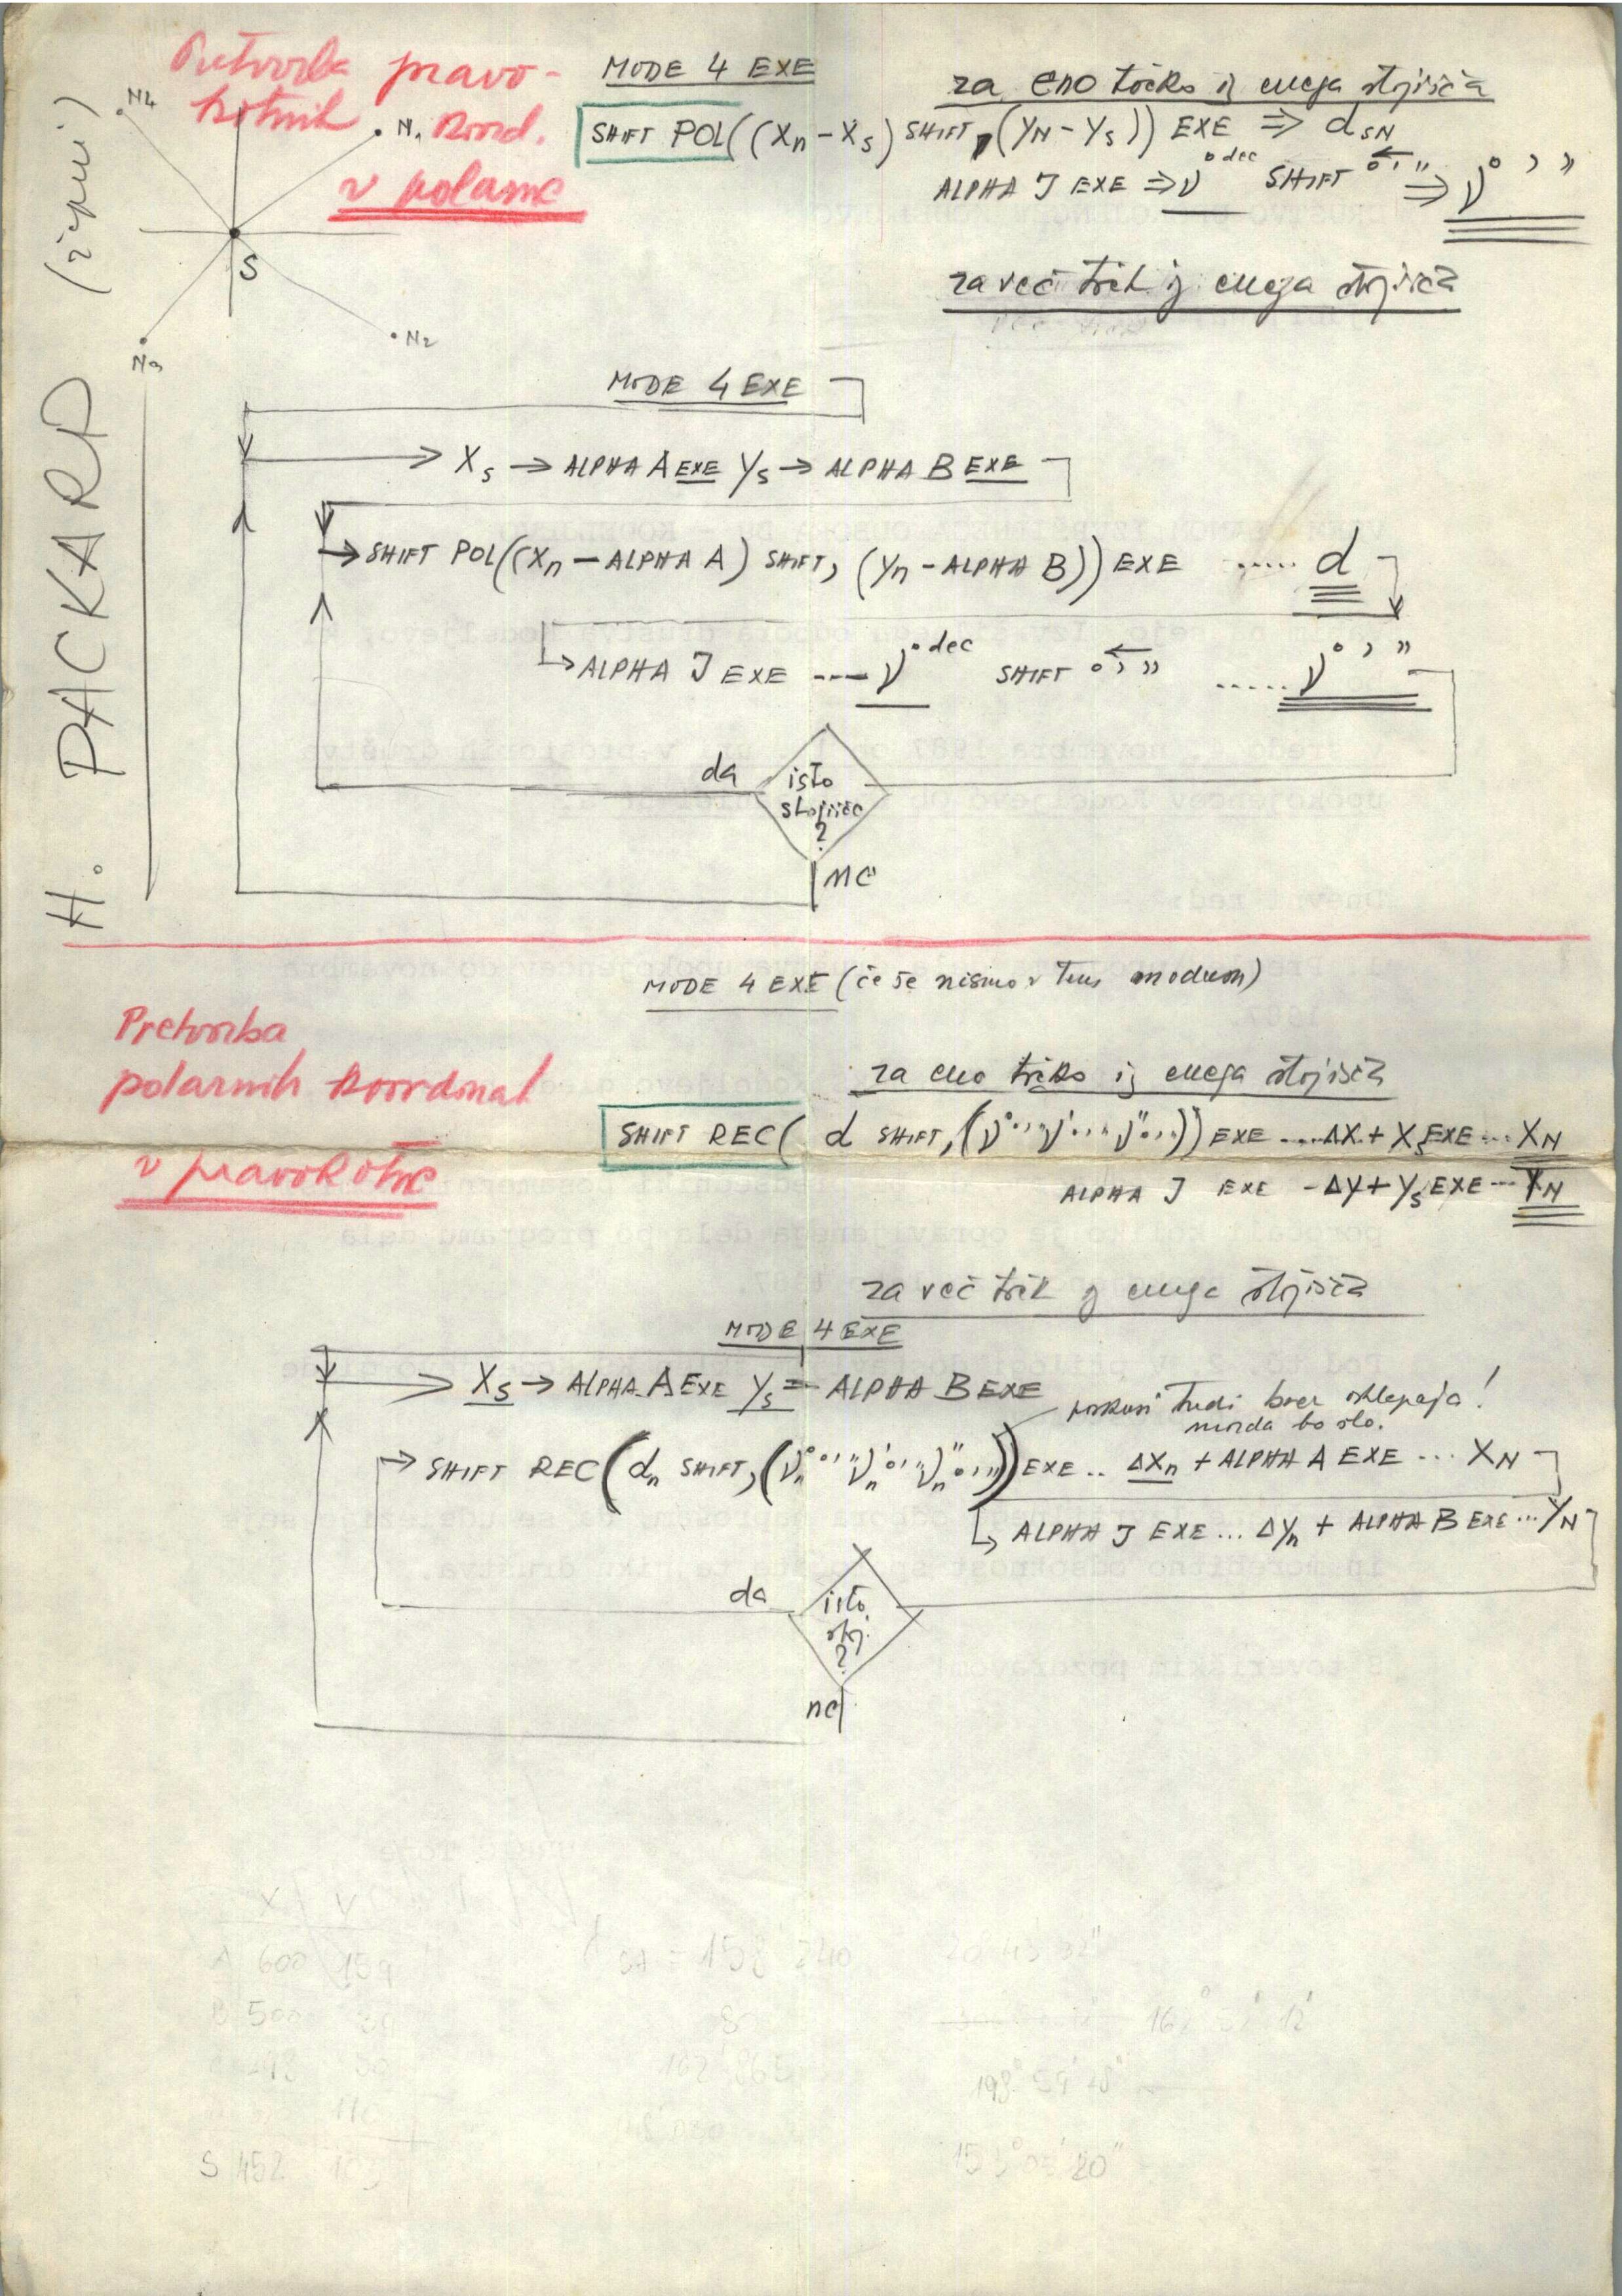 Pretvorba pravo-
kotnih koord.
v polarne
H. PACKARD (žepni)
N4
N1
S
N2
N3
MODE 4 EXE
za eno točko iz enega stojišča
SHIFT POL((Xn-Xs) SHIFT, (YN-Ys)) EXE ⇒ dSN
ALPHA J EXE ⇒ ν° dec SHIFT °,,, ⇒ ν° , ,,
za več točk iz enega stojišča
MODE 4 EXE
Xs → ALPHA A EXE Ys → ALPHA B EXE
SHIFT POL((Xn - ALPHA A) SHIFT, (Yn - ALPHA B)) EXE ..... d
ALPHA J EXE ---- ν° dec SHIFT °,,, ..... ν° , ,,
da
isto
stojišče
?
NE
MODE 4 EXE (če še nismo v tem modusu)
Pretvorba
polarnih koordinat
v pravokotne
za eno točko iz enega stojišča
SHIFT REC( d SHIFT, (ν° °,,, ν' °,,, ν" °,,,)) EXE ... ΔX + Xs EXE ... XN
ALPHA J EXE - ΔY + Ys EXE ... YN
za več točk iz enega stojišča
MODE 4 EXE
Xs → ALPHA A EXE Ys = ALPHA B EXE
poskusi tudi brez oklepaja!
morda bo šlo.
SHIFT REC(dn SHIFT, (νn° °,,, νn' °,,, νn" °,,,)) EXE .. ΔXn + ALPHA A EXE ... XN
ALPHA J EXE ... ΔYn + ALPHA B EXE ... YN
da
isto
stoj.
?
ne